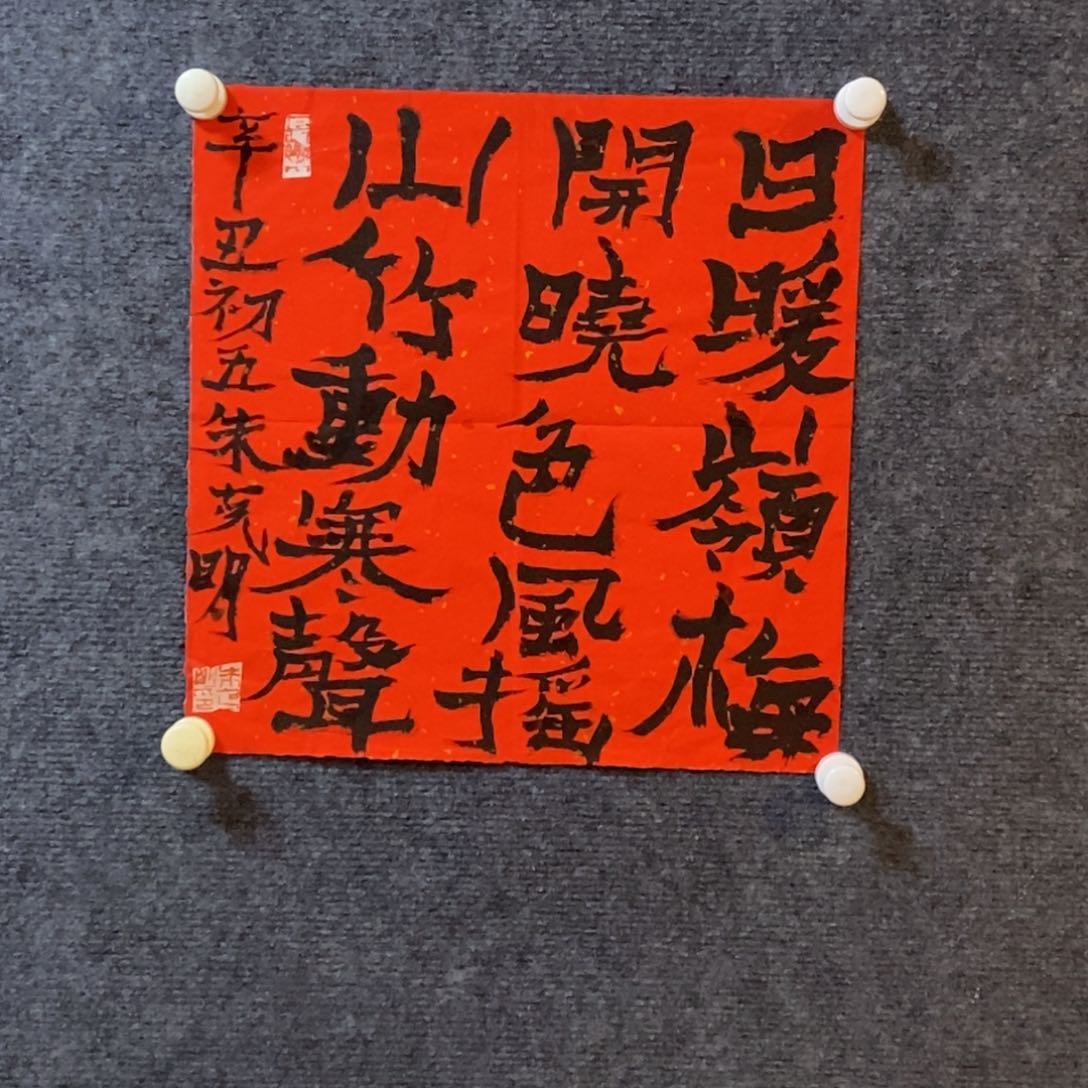 日暖嶺梅
開曉色風摇
山竹動寒聲
辛丑初五朱克明